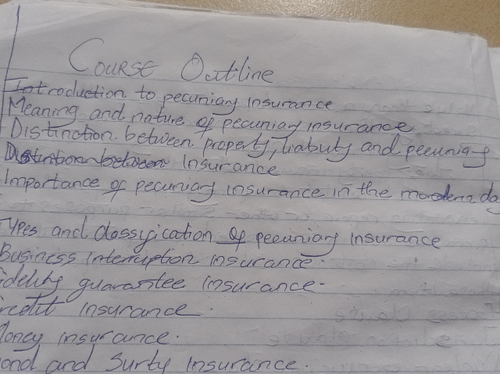 COURSE Outline
Introduction to pecuniary insurance
Meaning and nature of pecuniary insurance
Distinction between property, liabuty and pecuniary
Distintion between Insurance
Importance of pecuniary insurance in the mordern day
Types and classification of pecuniary insurance
Business interruption insurance.
fidelity guarantee insurance.
redit insurance.
Money insurance.
ond and Surty Insurance.